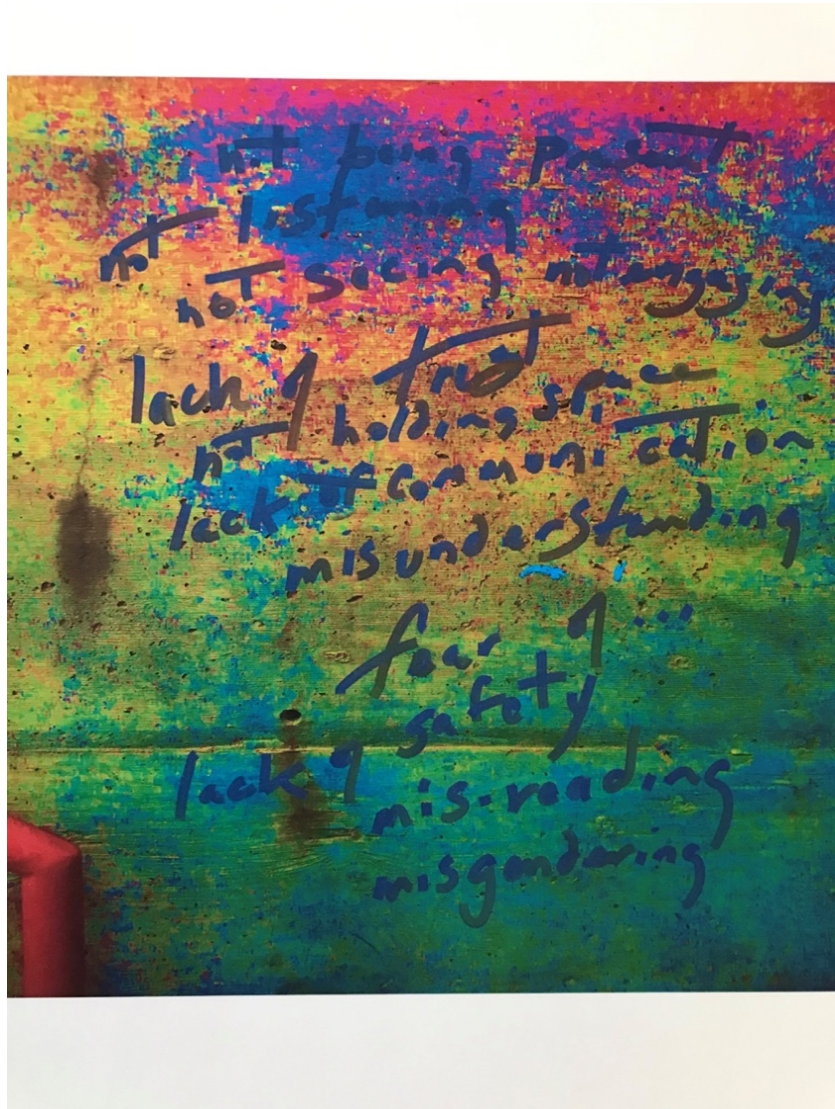 not being present
not listening
not seeing not engaging
lack of trust
not holding space
lack of communication
misunderstanding
fear of...
lack of safety
mis-reading
misgendering